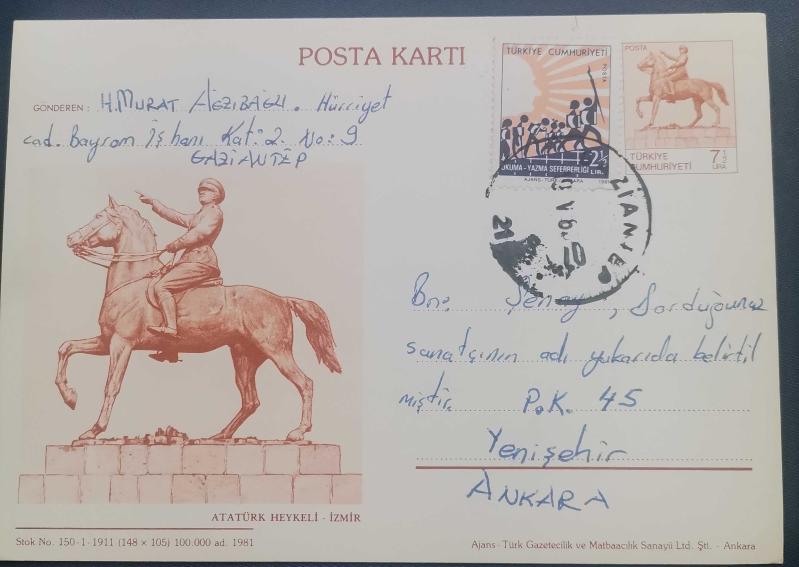 POSTA KARTI
GÖNDEREN : H. MURAT AĞZIBAĞLI. Hürriyet
cad. Bayram İş hanı Kat: 2. No: 9
GAZİANTEP
TÜRKİYE CUMHURİYETİ
POSTA
2½
OKUMA - YAZMA SEFERBERLİĞİ LİR.
AJANS-TÜRK ANKARA 1981
POSTA
TÜRKİYE CUMHURİYETİ
7½ LİRA
ZİANTEP
21
Bn: Şenay, Sorduğunuz
sanatçının adı yukarıda belirtil
miştir. P.K. 45
Yenişehir
ANKARA
ATATÜRK HEYKELİ - İZMİR
Stok No. 150-1-1911 (148 x 105) 100.000 ad. 1981
Ajans-Türk Gazetecilik ve Matbaacılık Sanayii Ltd. Şti. - Ankara